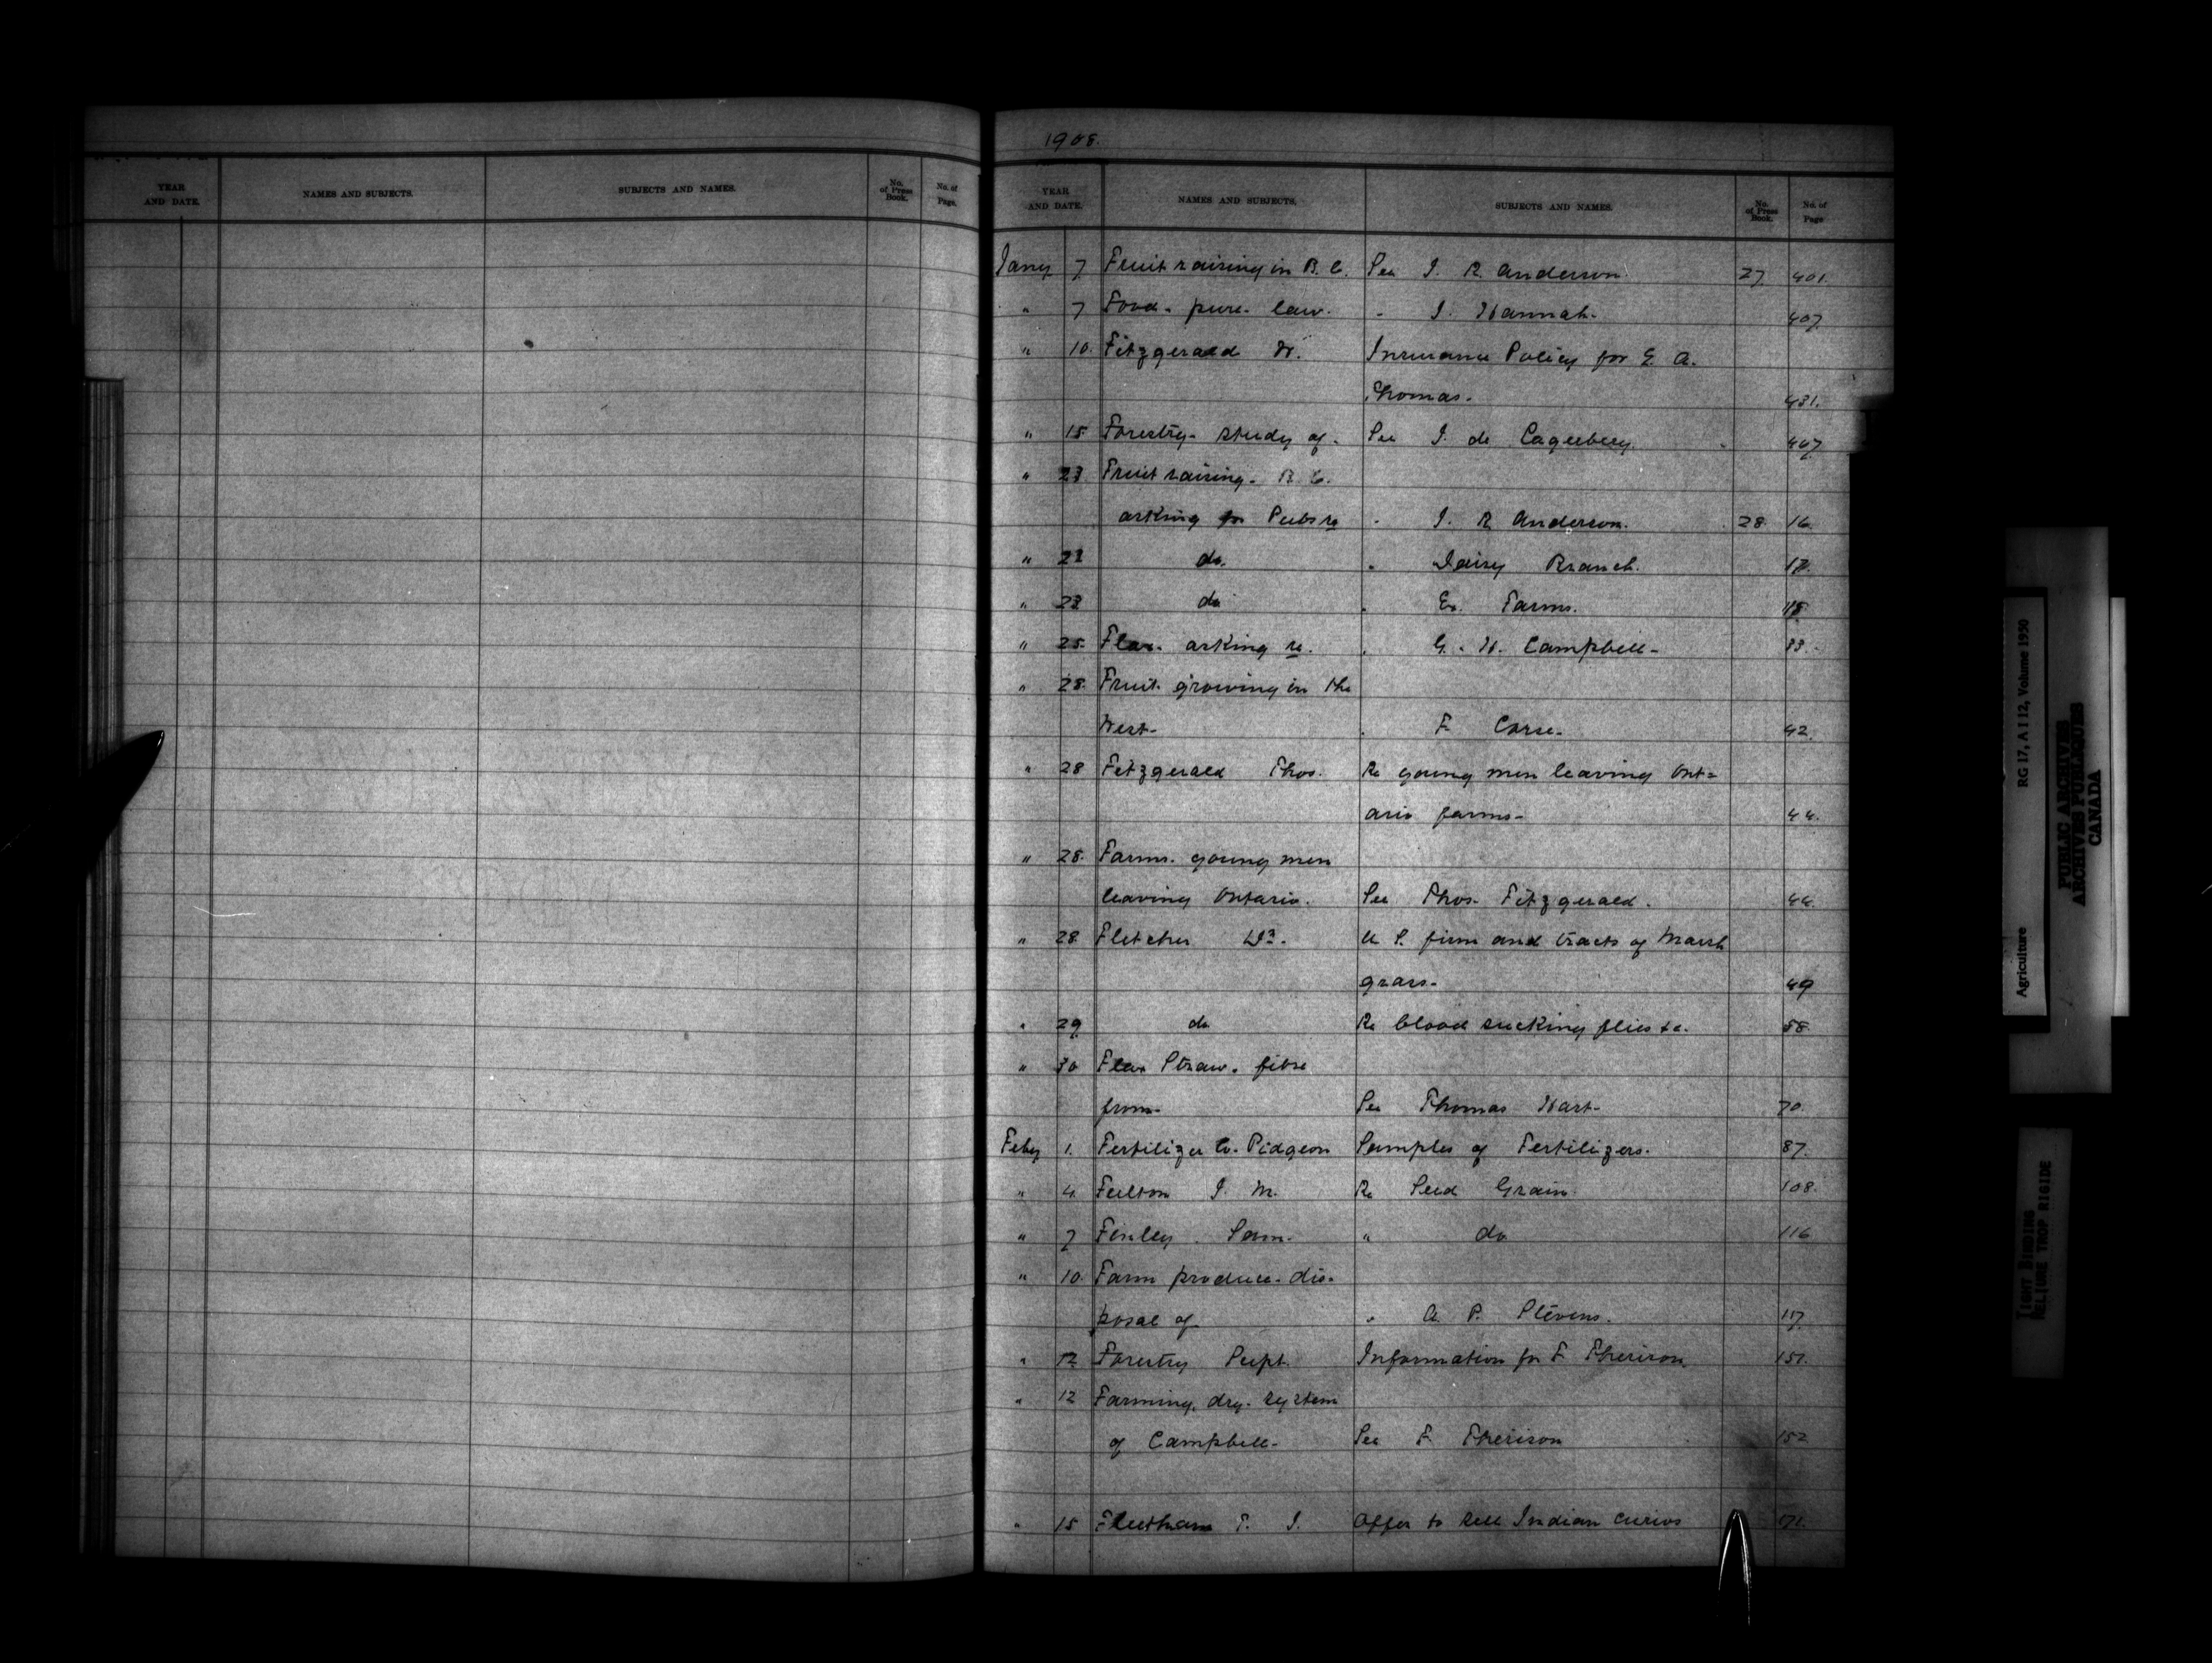 YEAR AND DATE. NAMES AND SUBJECTS. SUBJECTS AND NAMES. No. of Press Book. No. of Page.
1908.
YEAR AND DATE. NAMES AND SUBJECTS. SUBJECTS AND NAMES. No. of Press Book. No. of Page
Jany 7 Fruit raising in B. C. See J. R. Anderson. 27 401.
" 7 Food - pure - law. " J. Hannah - 407
" 10. Fitzgerald W. Insurance Policy for E. A.
Thomas - 431.
" 15 Forestry - study of - See J. de Lagerberg. 447
" 23 Fruit raising - B. C.
asking for Pubs re " J. R. Anderson. 28. 16.
" 23 do. " Dairy Branch. 17.
" 23 do " Ex. Farms. 18.
" 25 Flax - asking re. " G. H. Campbell - 33.
" 28. Fruit growing in the
West - " F. Corse - 42.
" 28 Fitzgerald Thos. Re young men leaving Ont=
ario farms - 44.
" 28. Farms - young men
leaving Ontario. See Thos. Fitzgerald. 44.
" 28. Fletcher Dr. U S. firm and tracts of Marsh
grass - 49
" 29 do Re blood sucking flies &c. 58.
" 30 Flax Straw - fibre
from - See Thomas Hart - 70.
Feby 1. Fertilizer Co. Pidgeon Samples of Fertilizers. 87.
" 4. Fulton J. M. Re Seed Grain. 108.
" 7 Finley Sam. " do 116
" 10. Farm produce - dis-
posal of - " A. P. Stevens. 117.
" 12 Forestry Supt. Information for F Therison 151.
" 12 Farming, dry - system
of Campbell - See F. Therison 152
" 15 Fleetham T. J. Offer to sell Indian curios 171.
Agriculture RG 17, A I 12, Volume 1950
PUBLIC ARCHIVES
ARCHIVES PUBLIQUES
CANADA
TIGHT BINDING
RELIURE TROP RIGIDE